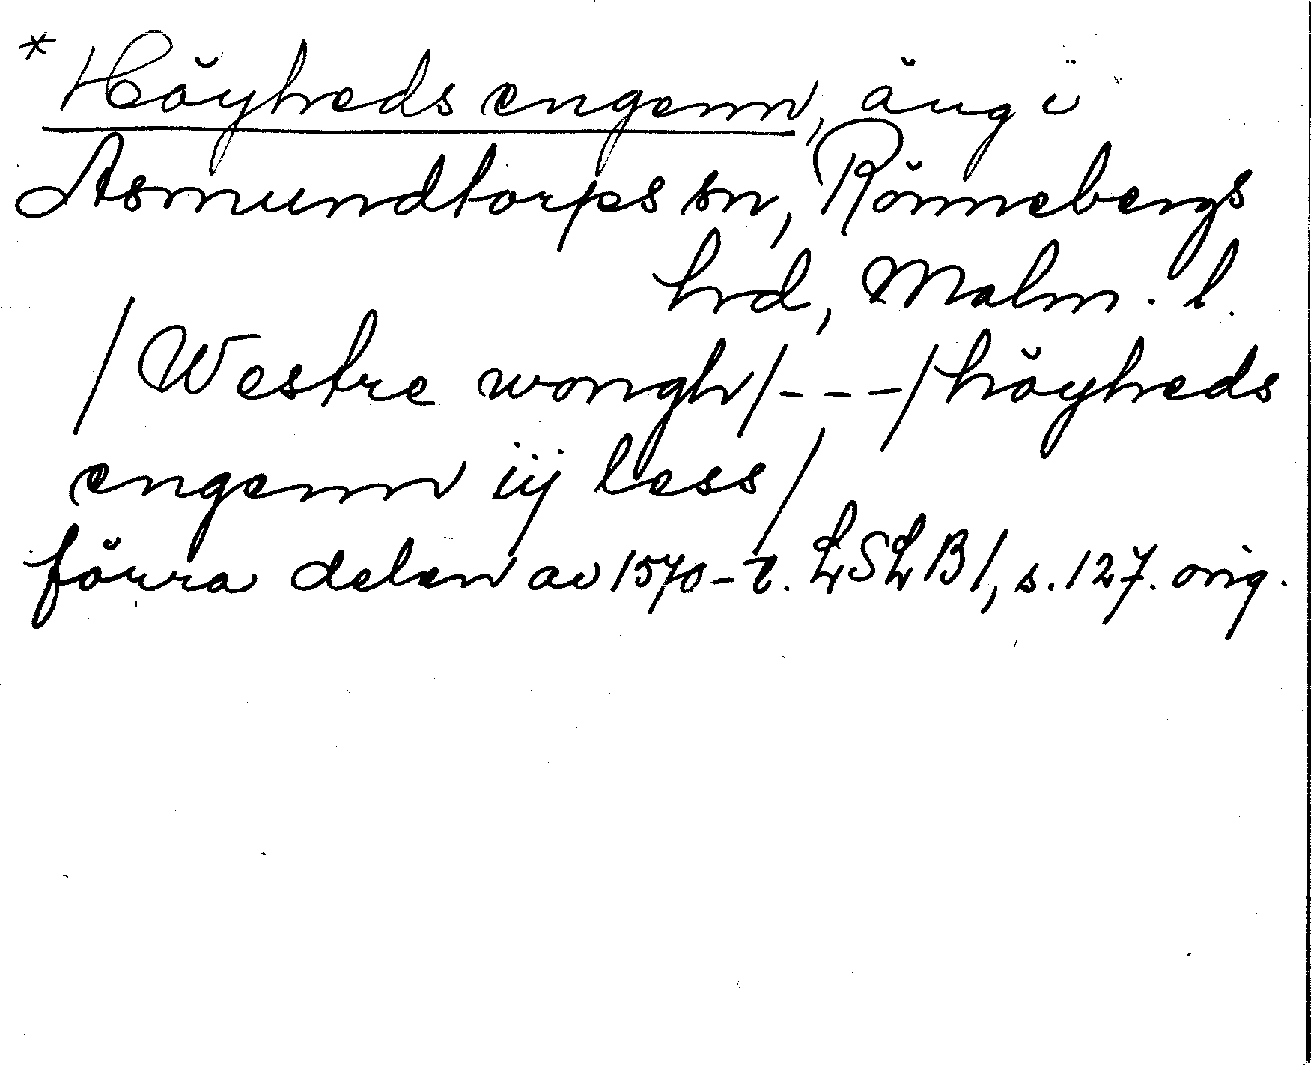 *Höyheds engenn, äng i
Asmundtorps sn, Rönnebergs
hrd, Malm. l.
/Westre wongh/---/höyheds
engenn iij less/
förra delen av 1570-t. LSLB1, s. 127. orig.